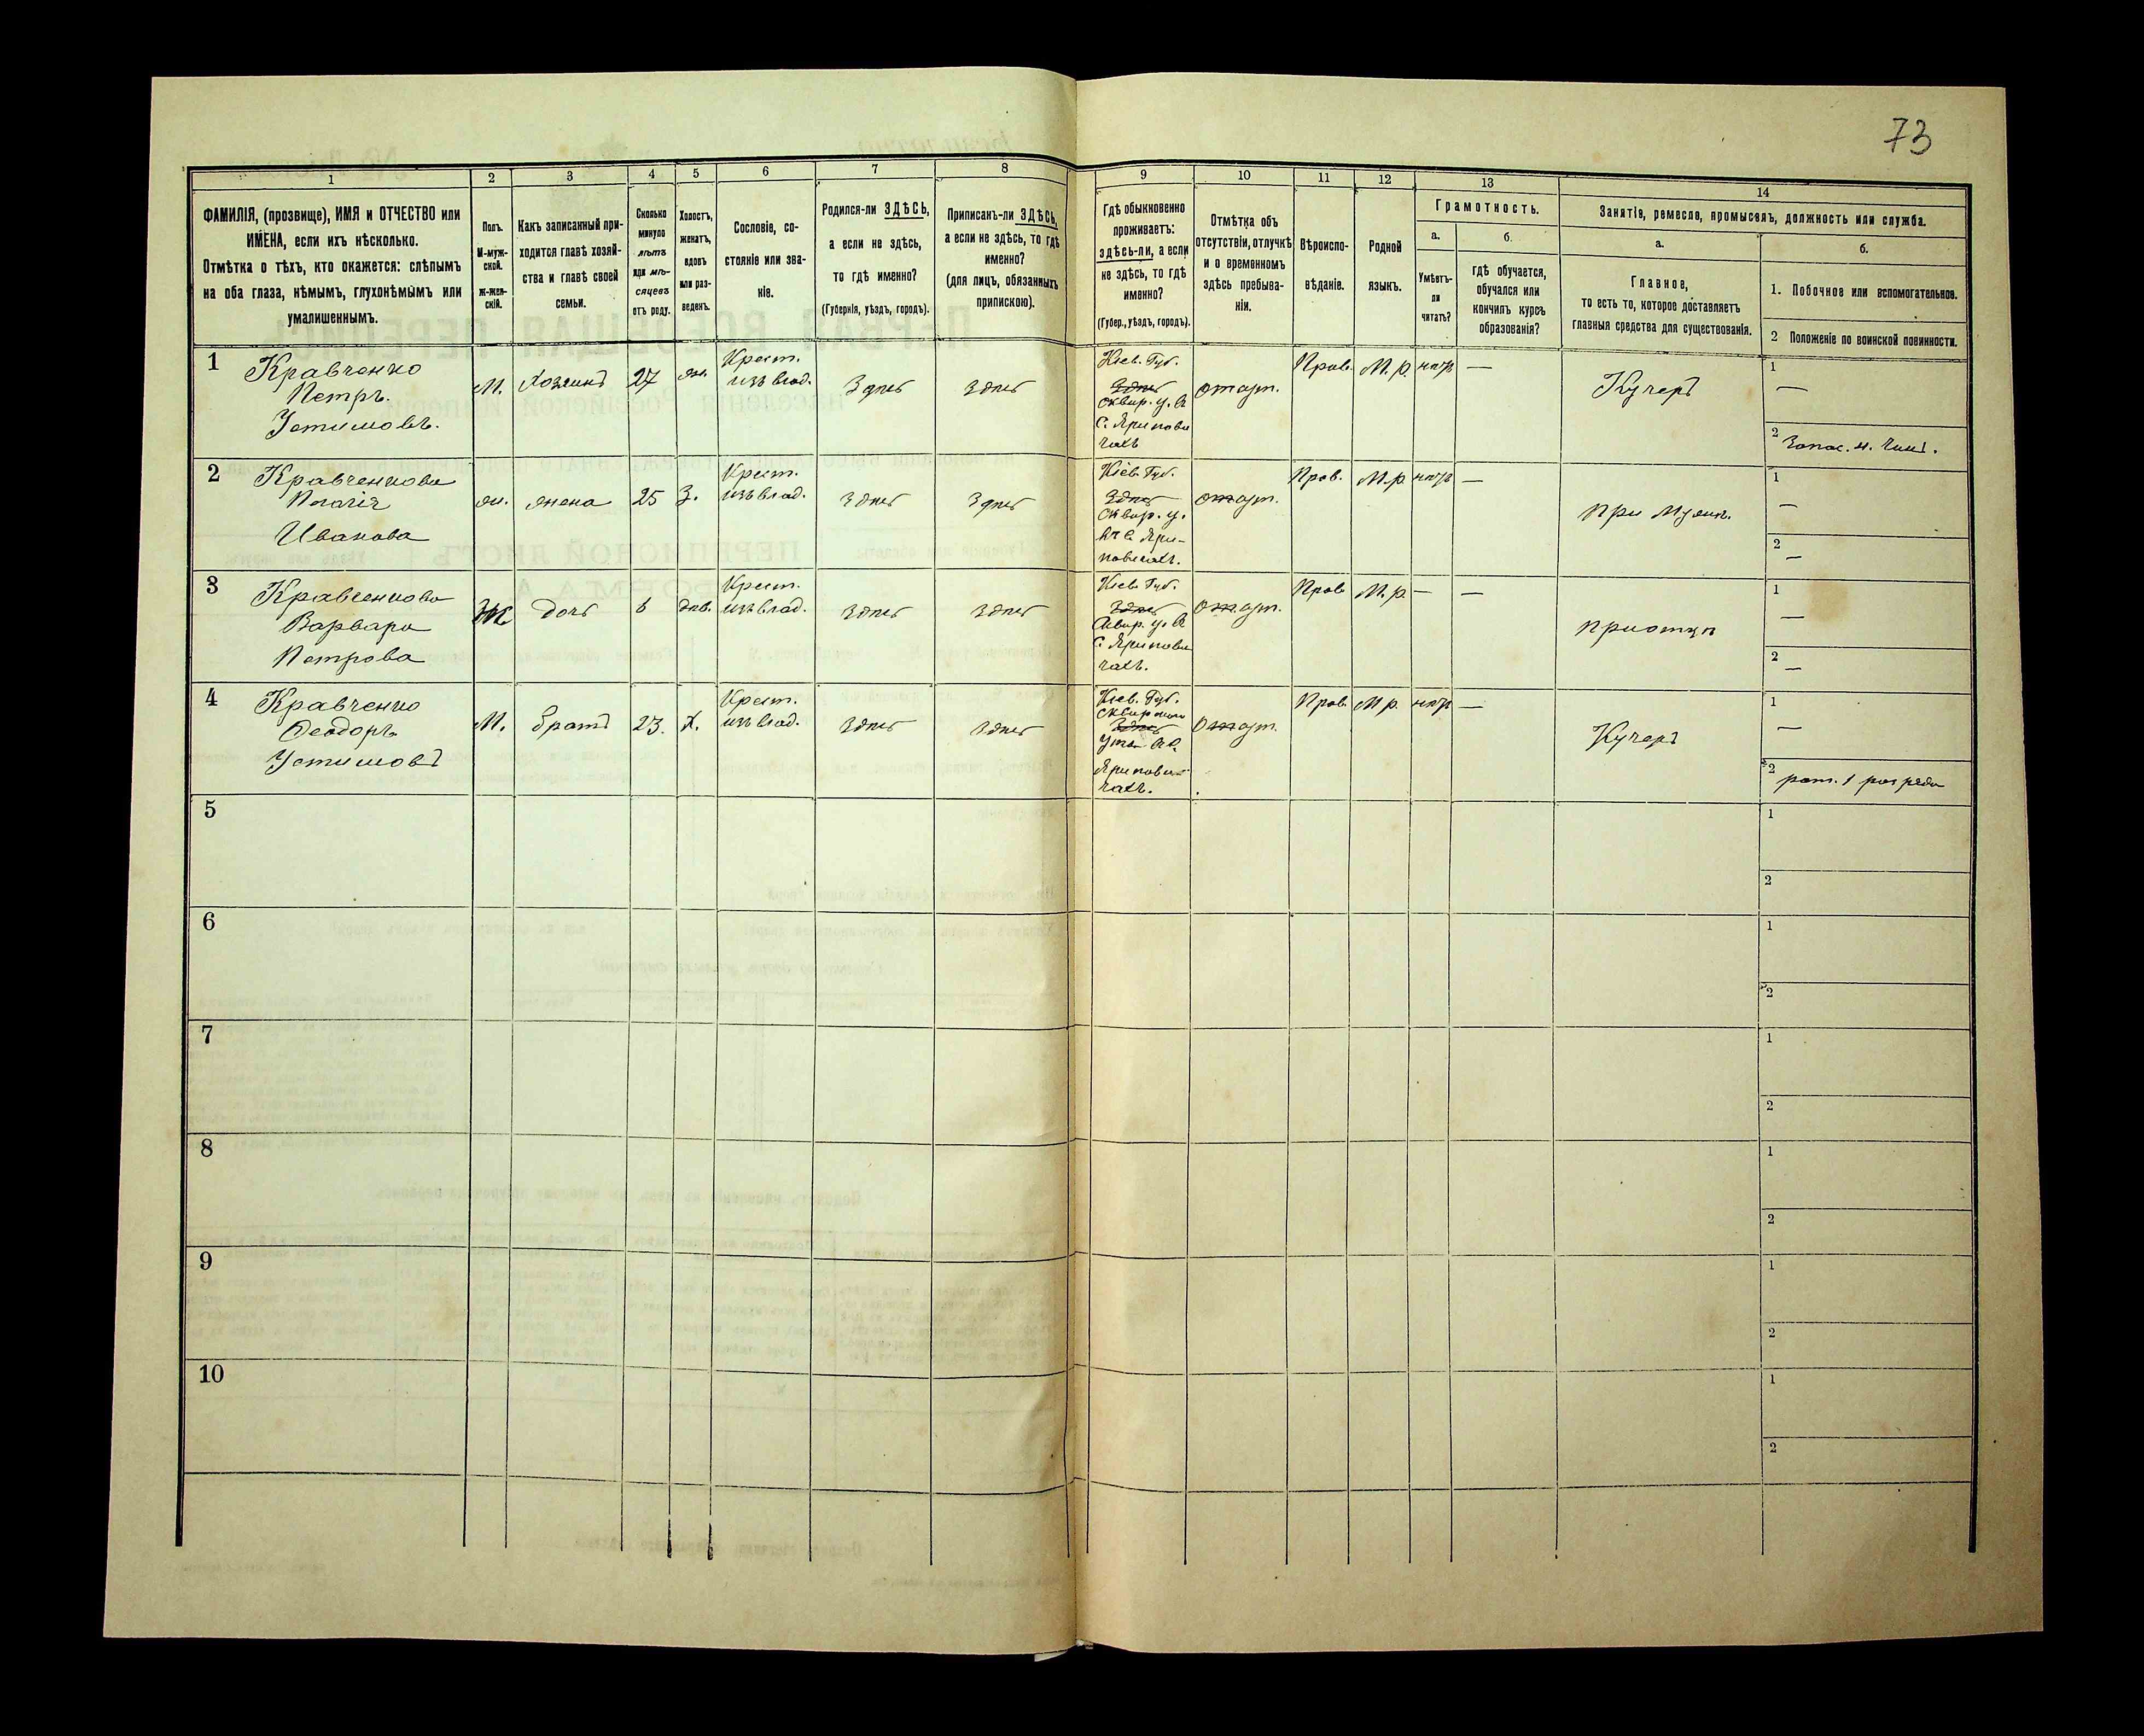 73
1
2
3
4
5
6
7
8
ФАМИЛІЯ, (прозвище), ИМЯ и ОТЧЕСТВО или
ИМЕНА, если ихъ нѣсколько.
Отмѣтка о тѣхъ, кто окажется: слѣпымъ
на оба глаза, нѣмымъ, глухонѣмымъ или
умалишеннымъ.
Полъ.
М-муж-
ской.
Ж-жен-
скій.
Какъ записанный при-
ходится главѣ хозяй-
ства и главѣ своей
семьи.
Сколько
минуло
лѣтъ
или мѣ-
сяцевъ
отъ роду.
Холостъ,
женатъ,
вдовъ
или раз-
веденъ.
Сословіе, со-
стояніе или зва-
ніе.
Родился-ли ЗДѢСЬ,
а если не здѣсь,
то гдѣ именно?
(Губернія, уѣздъ, городъ).
Приписанъ-ли ЗДѢСЬ,
а если не здѣсь, то гдѣ
именно?
(для лицъ, обязанныхъ
припискою).
9
10
11
12
13
14
Гдѣ обыкновенно
проживаетъ:
здѣсь-ли, а если
не здѣсь, то гдѣ
именно?
(Губер., уѣздъ, городъ).
Отмѣтка объ
отсутствіи, отлучкѣ
и о временномъ
здѣсь пребыва-
ніи.
Вѣроиспо-
вѣданіе.
Родной
языкъ.
Грамотность.
а.
Умѣетъ-
ли
читать?
б.
гдѣ обучается,
обучался или
кончилъ курсъ
образованія?
Занятія, ремесло, промыселъ, должность или служба.
а.
Главное,
то есть то, которое доставляетъ
главныя средства для существованія.
б.
1. Побочное или вспомогательное.
2 Положеніе по воинской повинности.
1
Кравченко
Петръ
Устимовъ.
М.
Хозяинъ
27
жен.
Крест.
изъ влад.
Здѣсь
Здѣсь
Кіев. Губ.
Здѣсь
Сквир. у. в
с. Ярипови
чахъ
отлуч.
Прав.
М. р.
нѣтъ
—
Кучеръ
1
—
2
Запас. н. Чинъ.
2
Кравченкова
Иванова
жена
25
З.
Крест.
изъ влад.
Здѣсь
Здѣсь
Кіев. Губ.
Здѣсь
Сквир. у.
въ с. Яри-
повичахъ.
отлуч.
Прав.
М. р.
нѣтъ
—
При мужѣ.
1
—
2
—
3
Кравченкова
Варвара
Петрова
Ж
дочь
6
дѣв.
Крест.
изъ влад.
Здѣсь
Здѣсь
Кіев. Губ.
Здѣсь
Сквир. у. в
с. Ярипови
чахъ.
отлуч.
Прав
М. р.
—
—
при отцѣ
1
—
2
—
4
Кравченко
Ѳеодоръ
Устимовъ
М.
братъ
23.
Х.
Крест.
изъ влад.
Здѣсь
Здѣсь
Кіев. Губ.
Здѣсь
Ярипови-
чахъ.
отлуч.
Прав.
М. р.
нѣтъ
—
Кучеръ
1
—
2
рат. 1 разряда
5
1
2
6
1
2
7
1
2
8
1
2
9
1
2
10
1
2